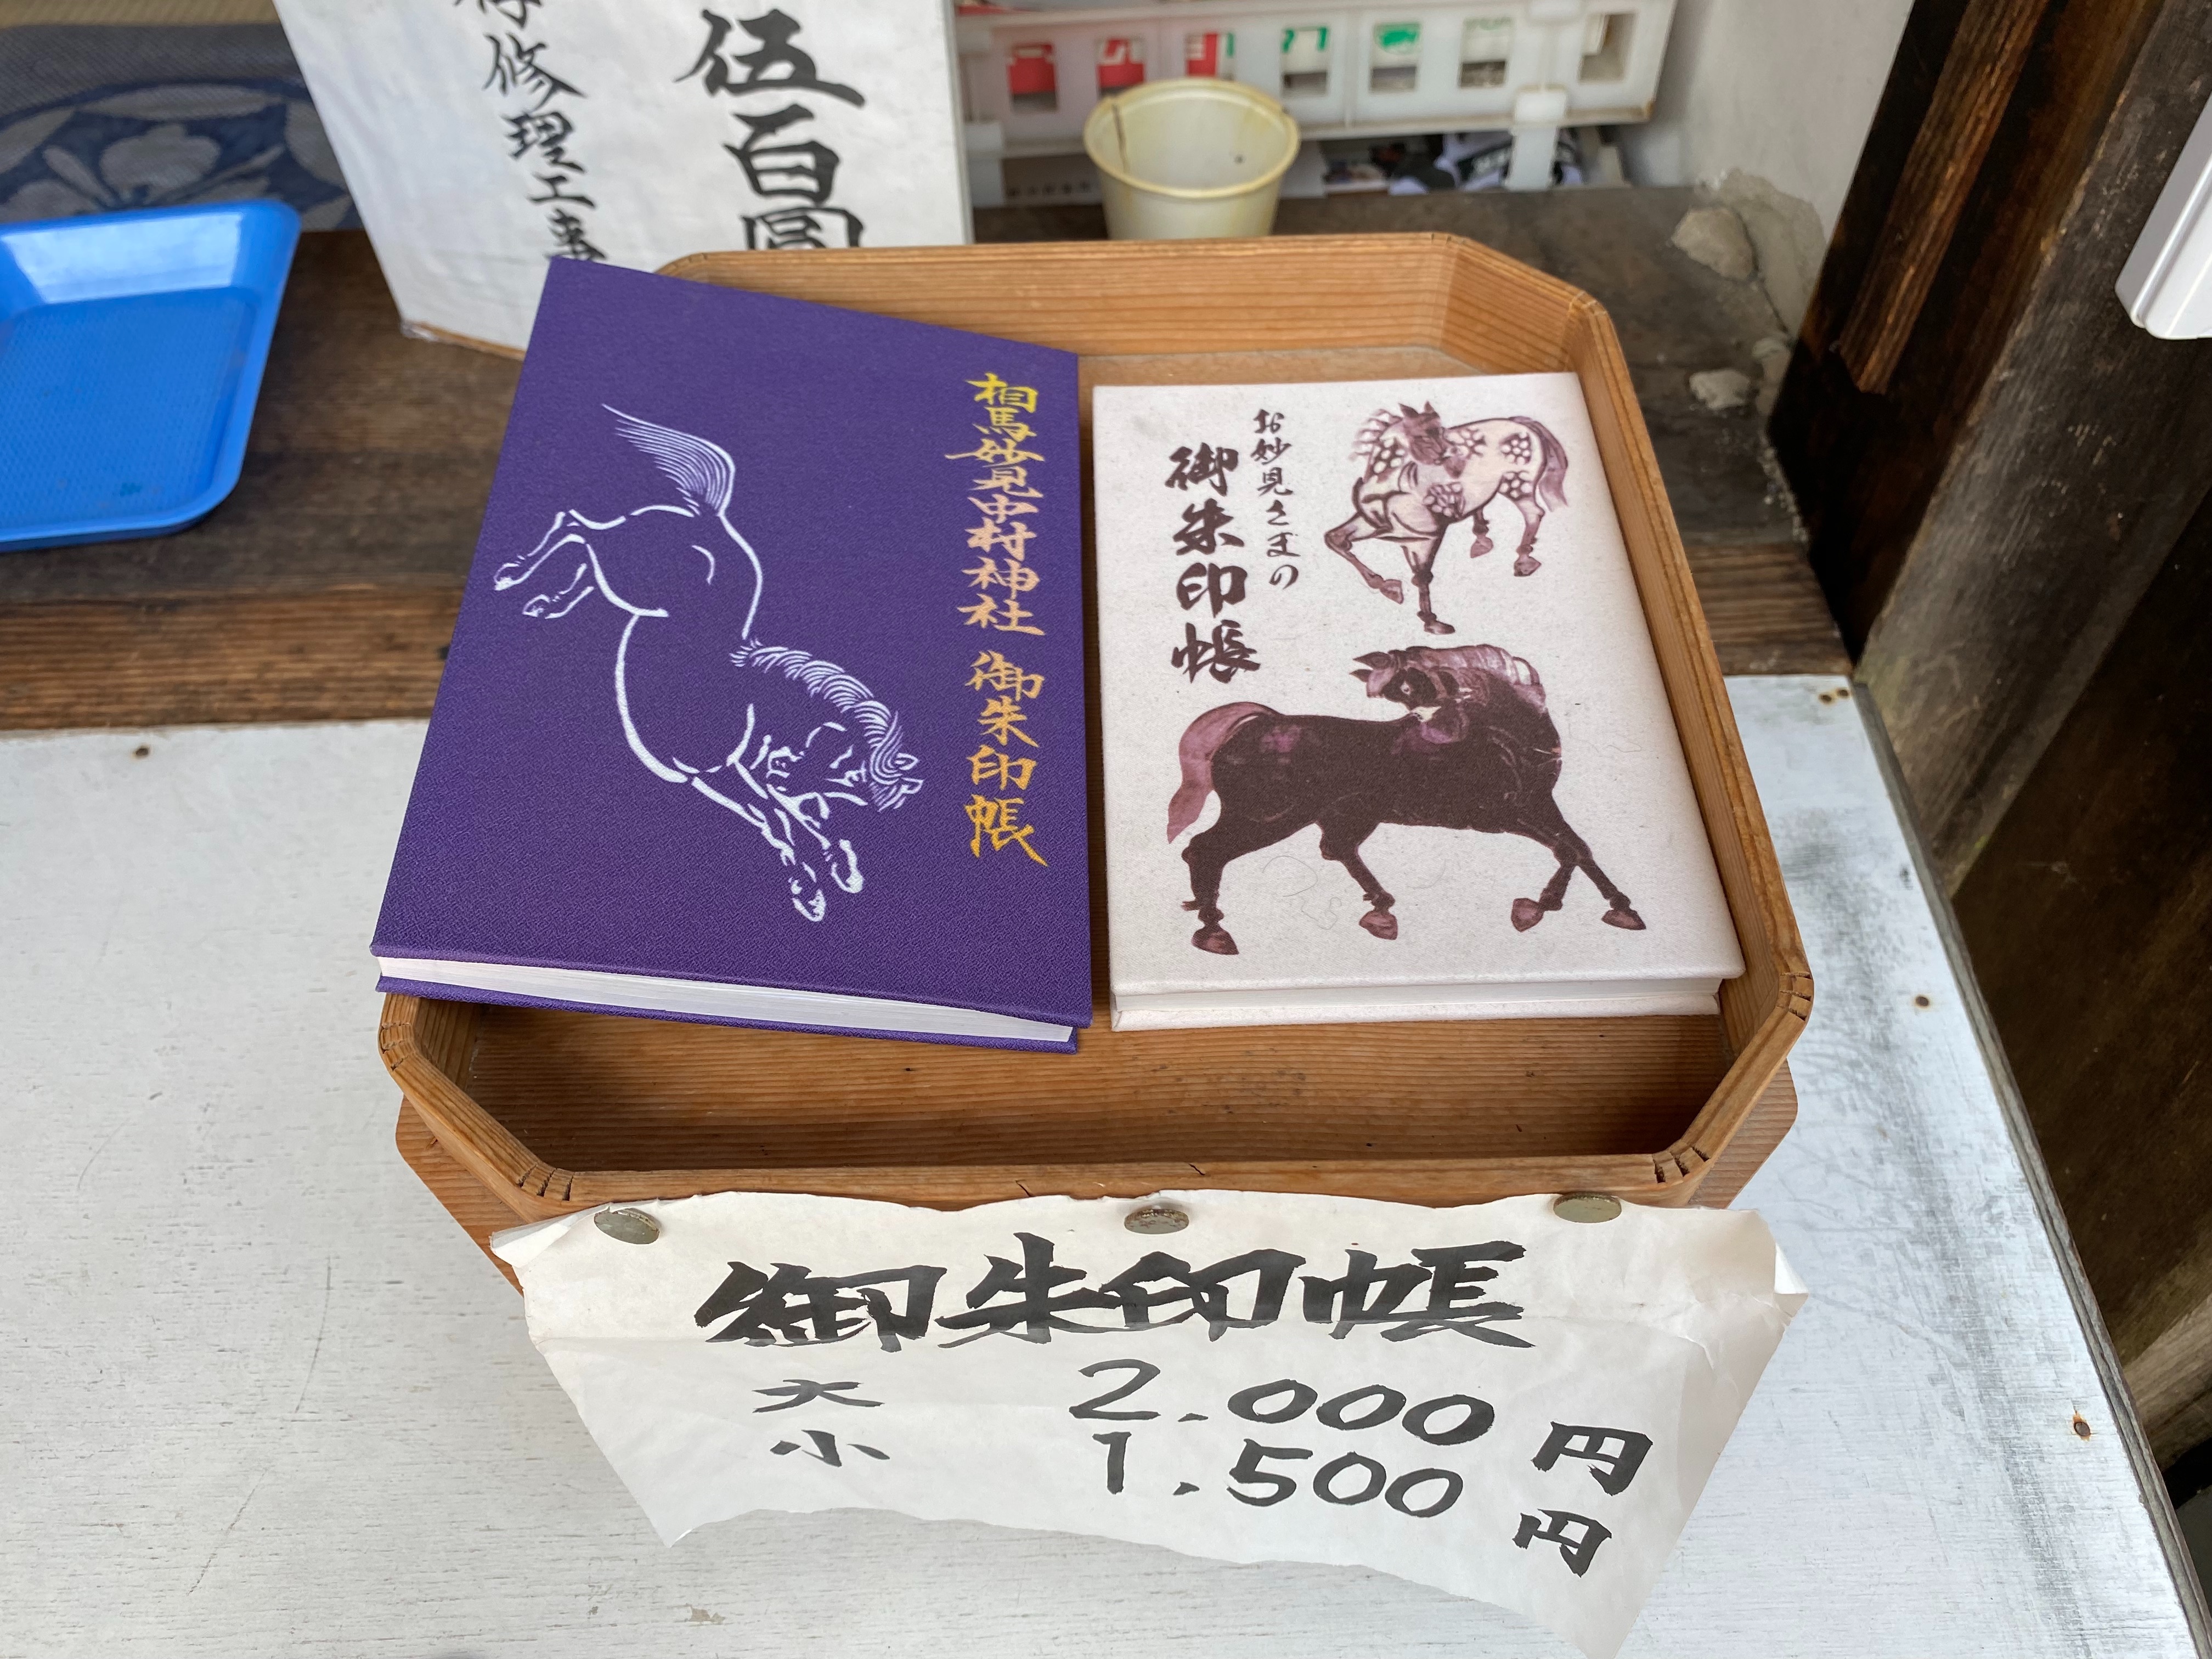 伍百圓
修理工事
相馬妙見中村神社 御朱印帳
お妙見さまの
御朱印帳
御朱印帳
大 2.000円
小 1.500円